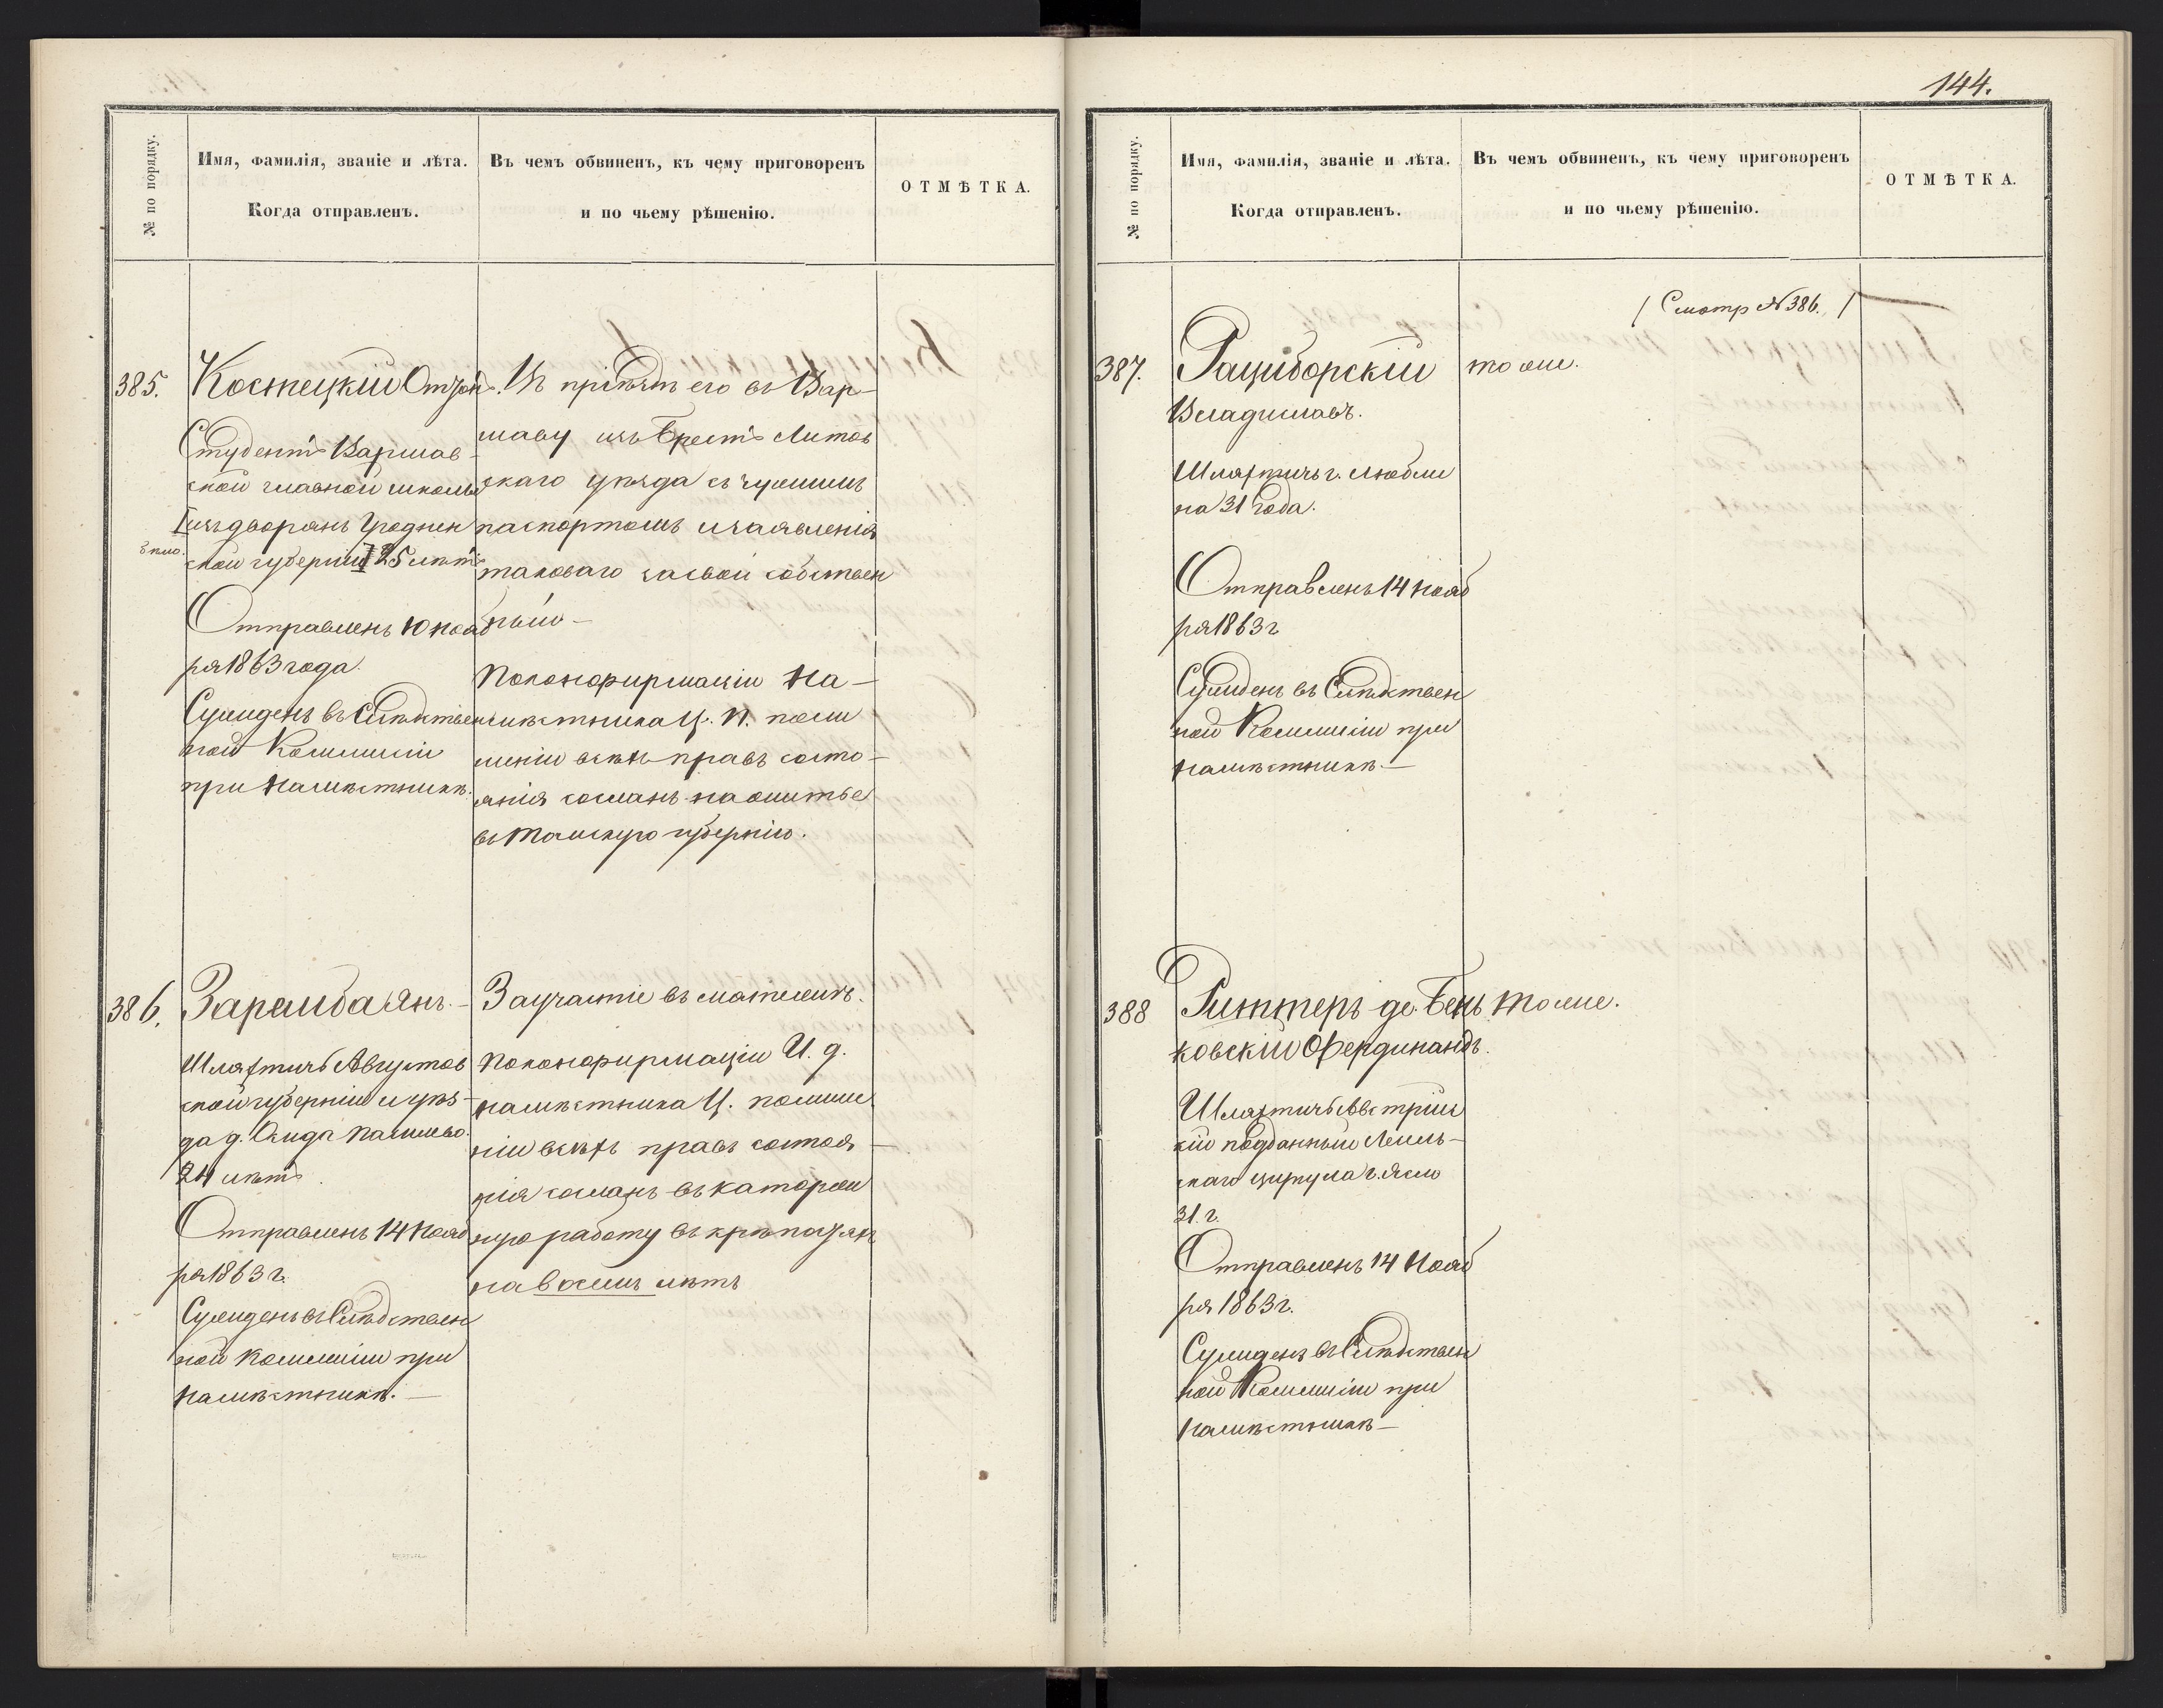 144.
№ по порядку.
Имя, фамилія, званіе и лѣта.
Когда отправленъ.
Въ чемъ обвиненъ, къ чему приговоренъ
и по чьему рѣшенію.
ОТМѢТКА.
385.
Костецкій
Студентъ Варшав
ской главной школы
изъ дворянъ Гроднен
ской губерніи 25 лѣтъ
Отправленъ 10 нояб
ря 1863 года.
Сужденъ въ Слѣдствен
ной Коммисіи
при Намѣстникѣ.
Въ пріѣздѣ его въ Вар-
шаву изъ Брестъ Литов
скаго уѣзда съ чужимъ
паспортомъ и заявленія
таковаго за свой собствен
ный —
По конфирмаціи На-
мѣстника Ц. П. по ли
шеніи всѣхъ правъ состо-
янія сосланъ на житье
въ Томскую губернію.
386.
Заремба Янъ. —
Шляхтичъ Августов
ской губерніи и уѣз-
да д.
24 лѣтъ.
Отправленъ 14 Нояб
ря 1863 г.
Сужденъ въ Слѣдствен
ной Коммисіи при
Намѣстникѣ. —
За участіе въ мятежѣ.
По конфирмаціи И. д.
намѣстника Ц. по лише
ніи всѣхъ правъ состоя —
нія сосланъ въ каторж
ную работу въ крѣпостяхъ
на восемь лѣтъ
№ по порядку.
Имя, фамилія, званіе и лѣта.
Когда отправленъ.
Въ чемъ обвиненъ, къ чему приговоренъ
и по чьему рѣшенію.
ОТМѢТКА.
/ Смотр № 386. /
387.
Рациборскій
Владиславъ.
Шляхтичъ г. Любли
на 31 года.
Отправленъ 14 Нояб
ря 1863 г
Сужденъ въ Слѣдствен
ной Коммисіи при
Намѣстникѣ. —
тоже.
388
Риттеръ де Бень
ковскій Фердинандъ.
Шляхтичъ Австрій
скій подданный
скаго циркула г. Ясло
31. г.
Отправленъ 14 Нояб
ря 1863 г.
Сужденъ въ Слѣдствен
ной Коммисіи при
Намѣстникѣ —
тоже.